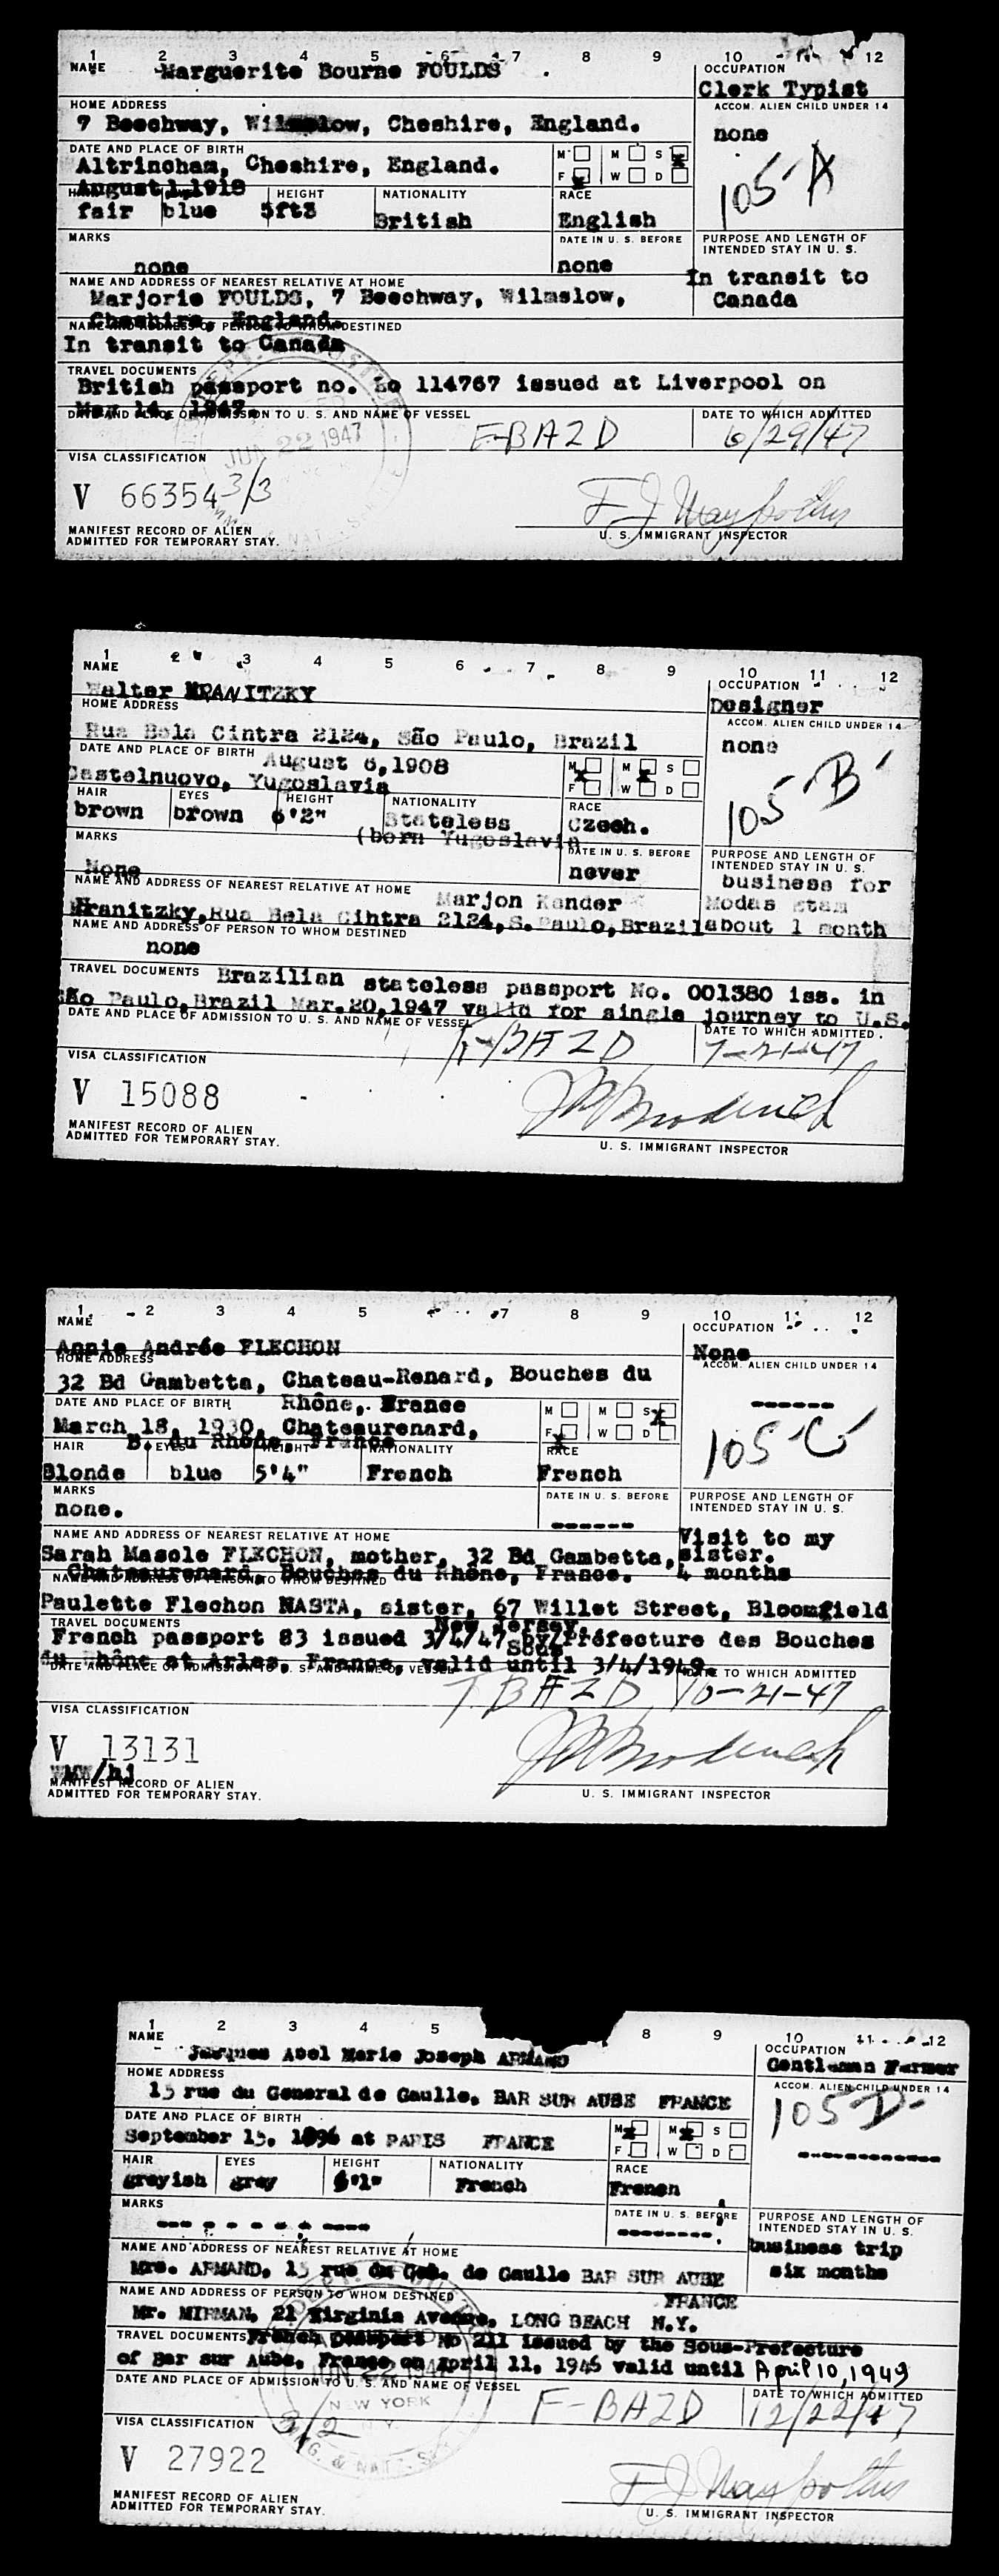 1 2 3 4 5 6 7 8 9 10 12
NAME Marguerite Bourne FOULDS
OCCUPATION
Clerk Typist
HOME ADDRESS
7 Beechway, Wilmslow, Cheshire, England.
ACCOM. ALIEN CHILD UNDER 14
none
105-A
DATE AND PLACE OF BIRTH
Altrincham, Cheshire, England.
August 1, 1918
M M S
F W D
HEIGHT NATIONALITY RACE
fair blue 5ft3 British English
MARKS
none
DATE IN U. S. BEFORE
none
PURPOSE AND LENGTH OF
INTENDED STAY IN U. S.
In transit to
Canada
NAME AND ADDRESS OF NEAREST RELATIVE AT HOME
Marjorie FOULDS, 7 Beechway, Wilmslow,
Cheshire, England.
NAME AND ADDRESS OF PERSON TO WHOM DESTINED
In transit to Canada
TRAVEL DOCUMENTS
British passport no. Lo 114767 issued at Liverpool on
Mar 14, 1947.
DATE AND PLACE OF ADMISSION TO U. S. AND NAME OF VESSEL
F-BAZD
JUN 22 1947
DATE TO WHICH ADMITTED
6/29/47
VISA CLASSIFICATION
V 66354 3/3
MANIFEST RECORD OF ALIEN
ADMITTED FOR TEMPORARY STAY.
U. S. IMMIGRANT INSPECTOR
1 2 3 4 5 6 7 8 9 10 11 12
NAME
Walter KRANITZKY
OCCUPATION
Designer
HOME ADDRESS
Rua Bela Cintra 2124, São Paulo, Brazil
ACCOM. ALIEN CHILD UNDER 14
none
105-B
DATE AND PLACE OF BIRTH August 6,1908
Castelnuovo, Yugoslavia
M M S
F W D
HAIR EYES HEIGHT NATIONALITY RACE
brown brown 6'2" Stateless Czech.
(born Yugoslavia
MARKS
None
DATE IN U. S. BEFORE
never
PURPOSE AND LENGTH OF
INTENDED STAY IN U. S.
business for
Modas
about 1 month
NAME AND ADDRESS OF NEAREST RELATIVE AT HOME Marjon Kander
Kranitzky,Rua Bela Cihtra 2124,S.Paulo,Brazil
NAME AND ADDRESS OF PERSON TO WHOM DESTINED
none
TRAVEL DOCUMENTS Brazilian stateless passport No. 001380 iss. in
São Paulo,Brazil Mar.20,1947 valid for single journey to U.S.
DATE AND PLACE OF ADMISSION TO U. S. AND NAME OF VESSEL
F-BAZD
DATE TO WHICH ADMITTED
7-21-47
VISA CLASSIFICATION
V 15088
MANIFEST RECORD OF ALIEN
ADMITTED FOR TEMPORARY STAY.
U. S. IMMIGRANT INSPECTOR
1 2 3 4 5 7 8 9 10 11 12
NAME
Annie Andrée FLECHON
OCCUPATION
None
HOME ADDRESS
32 Bd Gambetta, Chateau-Renard, Bouches du
Rhône, France
ACCOM. ALIEN CHILD UNDER 14
------
105-C
DATE AND PLACE OF BIRTH
March 18, 1930, Chateaurenard,
B. du Rhône, France
M M S
F W D
HAIR EYES HEIGHT NATIONALITY RACE
Blonde blue 5'4" French French
MARKS
none.
DATE IN U. S. BEFORE
------
PURPOSE AND LENGTH OF
INTENDED STAY IN U. S.
Visit to my
sister.
4 months
NAME AND ADDRESS OF NEAREST RELATIVE AT HOME
Sarah Masole FLECHON, mother, 32 Bd Gambetta,
Chateaurenard, Bouches du Rhône, France.
NAME AND ADDRESS OF PERSON TO WHOM DESTINED
Paulette Flechon NASTA, sister, 67 Willet Street, Bloomfield
New Jersey.
TRAVEL DOCUMENTS
French passport 83 issued 3/4/47 by Préfecture des Bouches
Sous
du Rhône at Arles, France, valid until 3/4/1949.
DATE AND PLACE OF ADMISSION TO U. S. AND NAME OF VESSEL
F BAZD
DATE TO WHICH ADMITTED
10-21-47
VISA CLASSIFICATION
V 13131
WMW/hj
MANIFEST RECORD OF ALIEN
ADMITTED FOR TEMPORARY STAY.
U. S. IMMIGRANT INSPECTOR
1 2 3 4 5 8 9 10 11 12
NAME
Jacques Abel Marie Joseph ARMAND
OCCUPATION
Gentleman Farmer
HOME ADDRESS
15 rue du General de Gaulle, BAR SUR AUBE FRANCE
ACCOM. ALIEN CHILD UNDER 14
105-D-
DATE AND PLACE OF BIRTH
September 15, 1896 at PARIS FRANCE
M M S
F W D
HAIR EYES HEIGHT NATIONALITY RACE
greyish grey 6'1" French French
MARKS
DATE IN U. S. BEFORE
PURPOSE AND LENGTH OF
INTENDED STAY IN U. S.
business trip
six months
NAME AND ADDRESS OF NEAREST RELATIVE AT HOME
Mrs. ARMAND, 15 rue du Gen. de Gaulle BAR SUR AUBE
FRANCE
NAME AND ADDRESS OF PERSON TO WHOM DESTINED
Mr. MIRMAN, 21 Virginia Avenue, LONG BEACH N.Y.
TRAVEL DOCUMENTS French passport No 211 issued by the Sous-Prefecture
of Bar sur Aube, France on April 11, 1946 valid until April 10, 1949
DATE AND PLACE OF ADMISSION TO U. S. AND NAME OF VESSEL
F-BAZD
JUN 22 1947
NEW YORK
N.Y.
DATE TO WHICH ADMITTED
12/22/47
VISA CLASSIFICATION 3/2
V 27922
MANIFEST RECORD OF ALIEN
ADMITTED FOR TEMPORARY STAY.
U. S. IMMIGRANT INSPECTOR